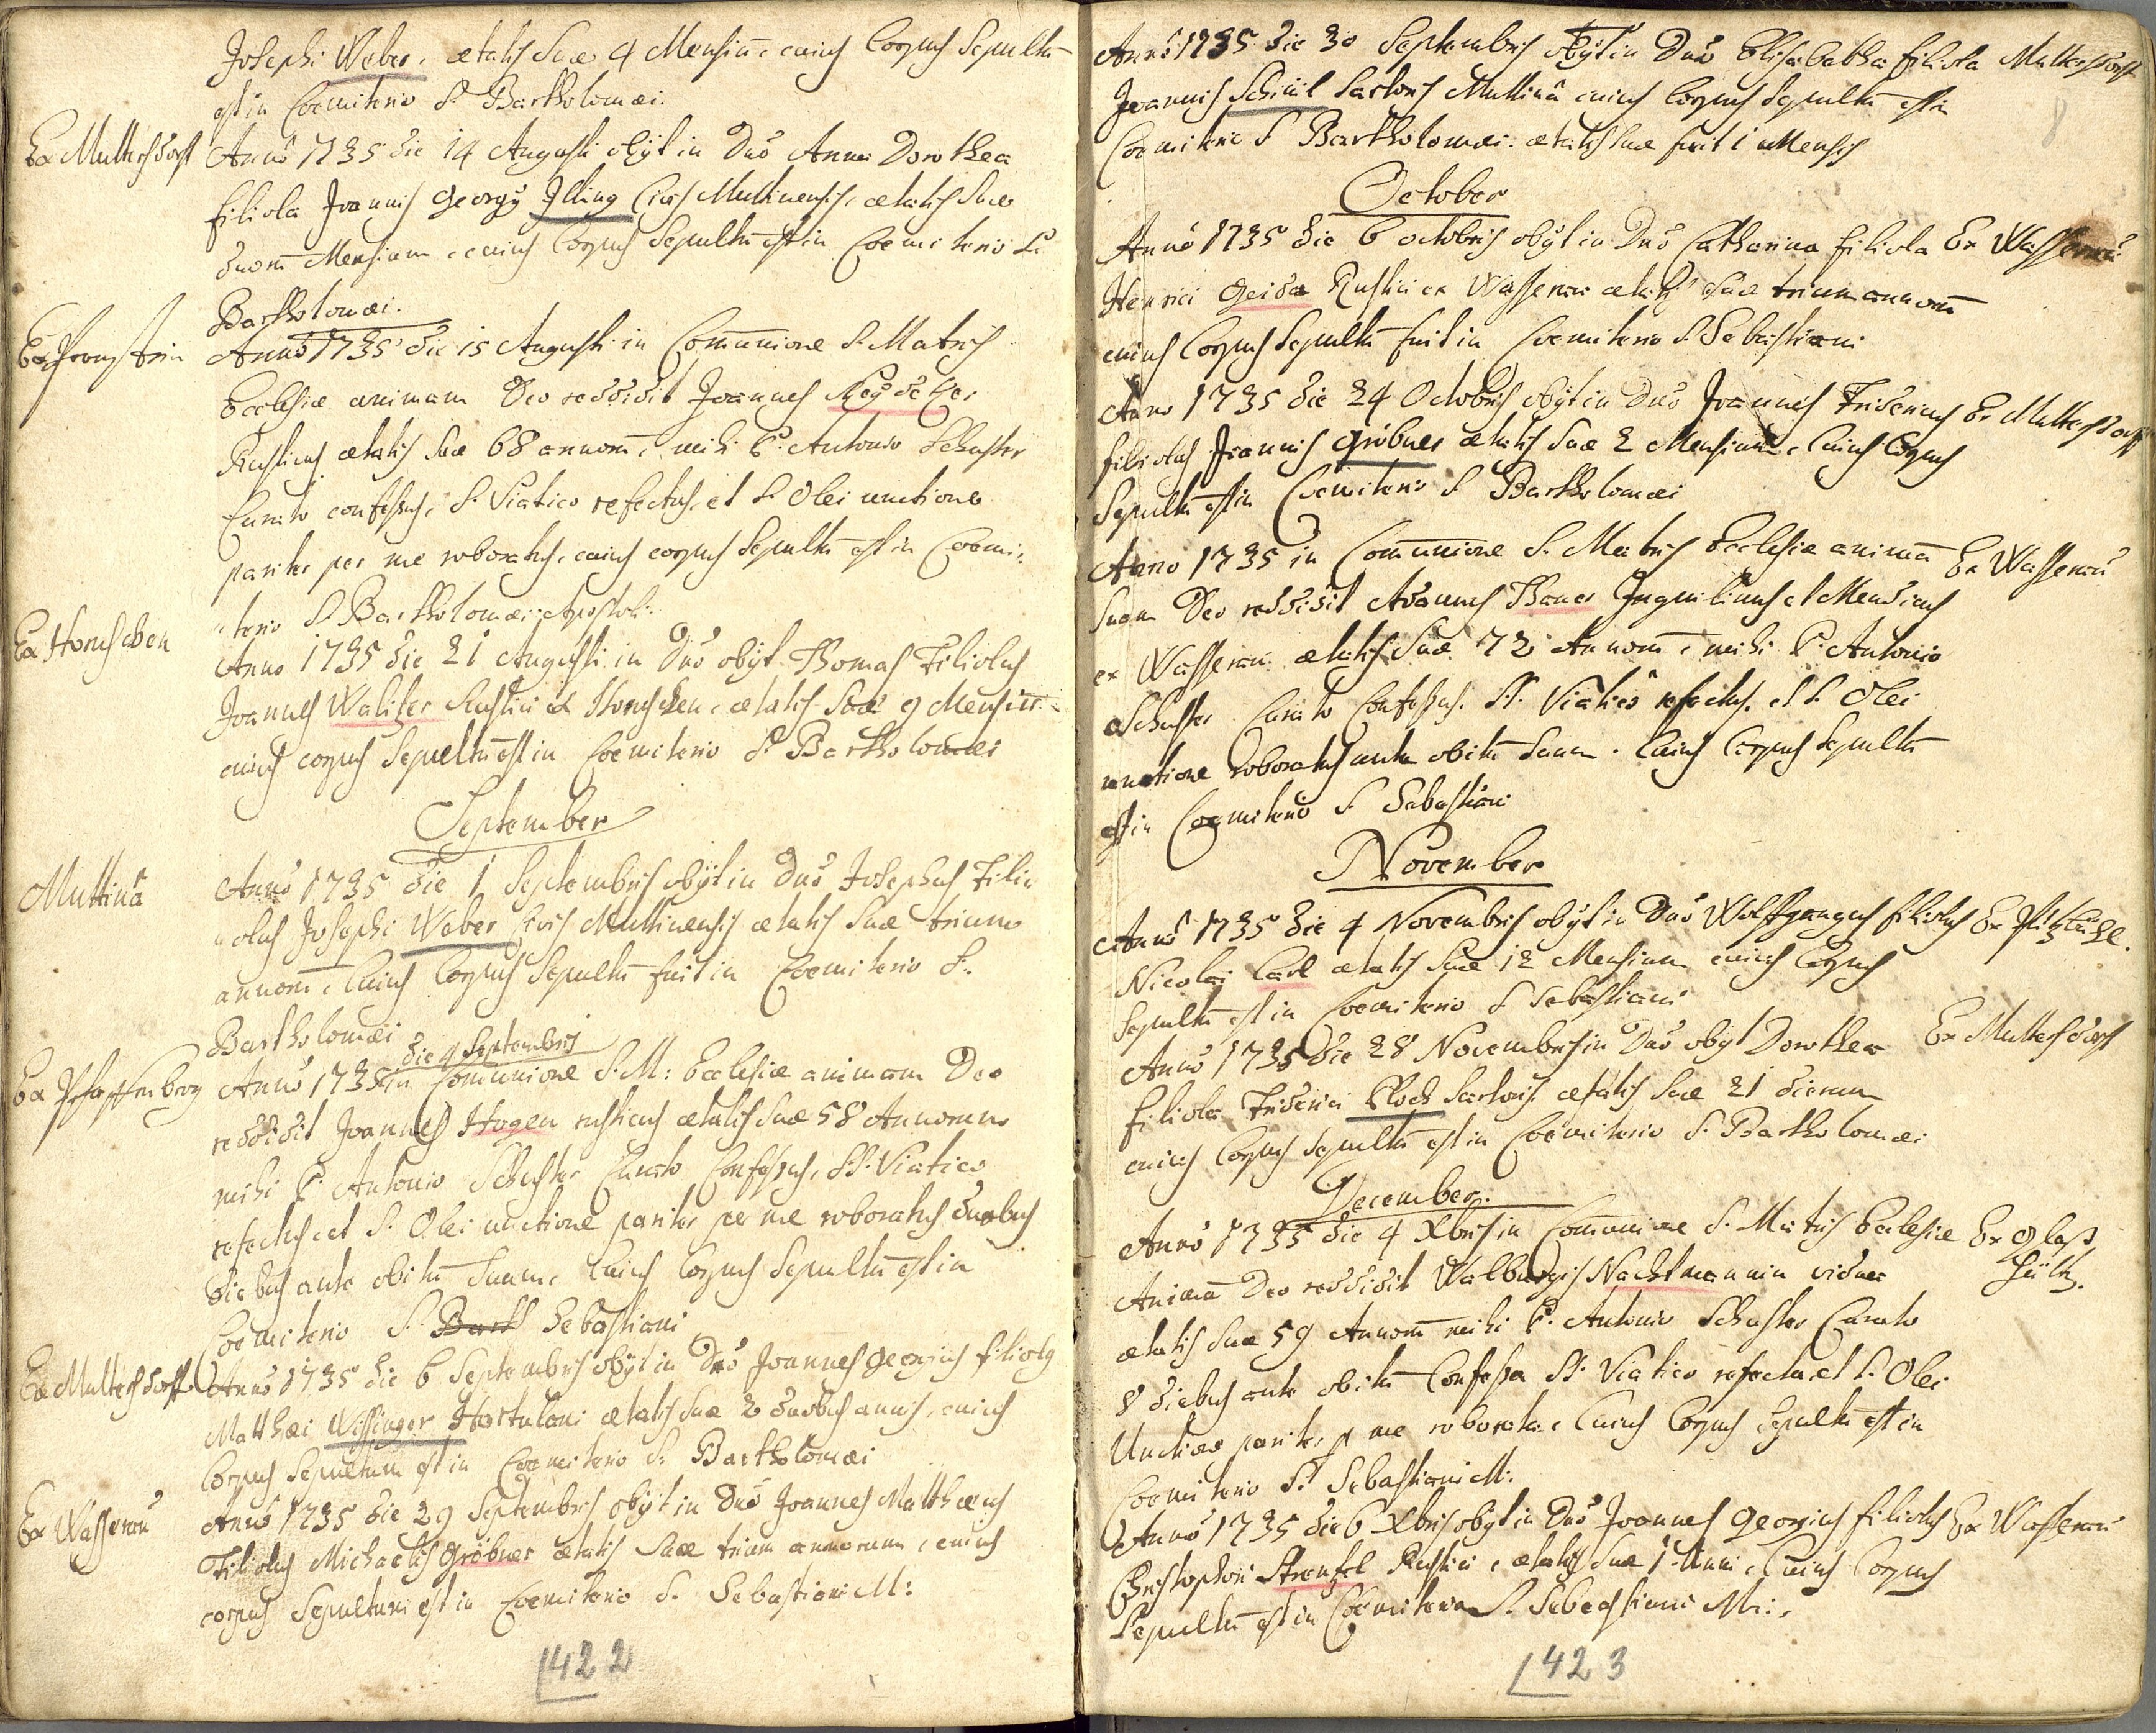 Josephi Weber, ætatis suæ 4 Mensiu, cuius Corpus Sepultu
est in Coemiterio S. Bartholomæi.
Ex Muttersdorff Anno 1735 die 14 Augusti obijt in Dno Anna Dorothea
filiola Joannis Georgij Illing Civis Muttinensis, ætatis suæ
duoru Mensium, cuius Corpus Sepultu est in Coemiterio S.
Bartholomæi.
Anno 1735 die 15 Augusti in Communione S. Matris
Ecclesiæ animam Deo reddidit Joannes
Rusticus ætatis suæ 68 annoru, mihi P. Antonio Schuster
Curato confessus, S. Viatico refectus, et S. Olei unctione
pariter per me roboratus, cuius corpus Sepultu est in Coemi:
terio S. Bartholomæi Apostoli.
Anno 1735 die 21 Augusti in Dno obijt Thomas Filiolus
Joannes Walitzer Rustici ex ætatis suæ 9 Mensiu
cuius corpus Sepultu est in Coemiterio S. Bartholomæi
September
Muttina Anno 1735 die 1 Septembris obijt in Dno Josephus Filio
olus Josephi Weber Civis Muttinensis ætatis suæ trium
annoru, Cuius Corpus Sepultu fuit in Coemiterio S.
Bartholomæi
die 4 Septembris
Ex Pfaffenberg Anno 1735 in Communione S. M: Ecclesiæ animam Deo
reddidit Joannes Hogen rusticus ætatis suæ 58 Annorum
mihi P. Antonio Schuster Curato Confessus, SS. Viatico
refectus, et S. Olei unctione pariter per me roboratus duobus
diebus ante obitu suum, Cuius Corpus Sepultu est in
Coemiterio S. Barth Sebastiani
Ex Muttersdorff Anno 1735 die 6 Septembris obijt in Dno Joannes Georgius filiolus
Matthæi Wissinger Hortulani ætatis suæ 2 duobus annis, cuius
Corpus Sepultum est in Coemiterio S. Bartholomæi
Ex Wasserau Anno 1735 die 29 Septembris obijt in Dno Joannes Matthæus
Filiolus Michaelis Gröbner ætatis suæ trium annorum, cuius
corpus Sepultum est in Coemiterio S. Sebastiani M:
1422
Anno 1735 die 30 Septembris obijt in Dno Elisabetha filiola Muttersdorff
Joannis Sartoris Muttina cuius Corpus Sepultu est in
Coemiterio S Bartholomæi: ætatis suæ fuit 1 Mensis
8
October
Anno 1735 die 6 octobris obijt in Dno Catharina filiola Ex Wasserau
Henrici Geida Rustici ex Wasserau ætatis suæ trium annoru
cuius Corpus Sepultu fuit in Coemiterio S. Sebastiani
Anno 1735 die 24 Octobris obijt in Dno Joannes Fridericus Ex Muttersdorff
filiolus Joannis Gröbner ætatis suæ 2 Mensium, Cuius Corpus
Sepultu est in Coemiterio S Bartholomæi
Anno 1735 in Communione S. Matris Ecclesiæ anima Ex Wasserau
suam Deo reddidit Adamus Inquilinus et Mendicus
ex Wasserau ætatis suæ 72 Annoru, mihi P. Antonio
Schuster Curato Confessus, SS. Viatico refectus, et S. Olei
unctione roboratus ante obitu suum. Cuius Corpus Sepultu
est in Coemiterio S Sebastiani
November
Anno 1735 die 4 Novembris obijt in Dno Wolffgangus filiolus
Nicolai ætatis suæ 12 Mensium cuius Corpus
Sepultu est in Coemiterio S Sebastiani
Anno 1735 die 28 Novembris in Dno obijt Dorothea Ex Muttersdorff
filiola Friderici Sartoris ætatis suæ 21 dierum
cuius Corpus Sepultu est in Coemiterio S. Bartholomæi
December.
Anno 1735 die 4 Xbris in Communione S. Matris Ecclesiæ Ex Glaß
Anima Deo reddidit Walburgis Nachtmannin vidua hütt.
ætatis suæ 59 Annoru mihi P. Antonio Schuster Curato
8 diebus ante obitu Confessa SS. Viatico refecta et S. Olei
Unctione pariter p me roborata, Cuius Corpus Sepultu est in
Coemiterio S. Sebastiani M:
Anno 1735 die 6 Xbris obijt in Dno Joannes Georgius filiolus Ex Wasserau
Christophori Rustici, ætatis suæ 1 Anni, Cuius Corpus
Sepultu est in Coemiterio S. Sebastiani M:
1423